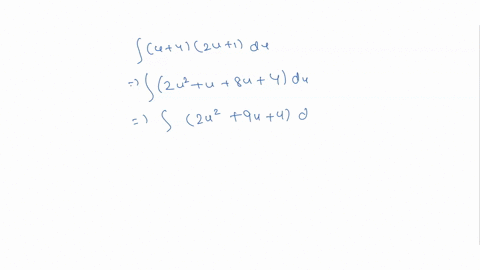 ∫(u+4)(2u+1) du
=) ∫(2u² + u + 8u + 4) du
=) ∫ (2u² + 9u + 4) d